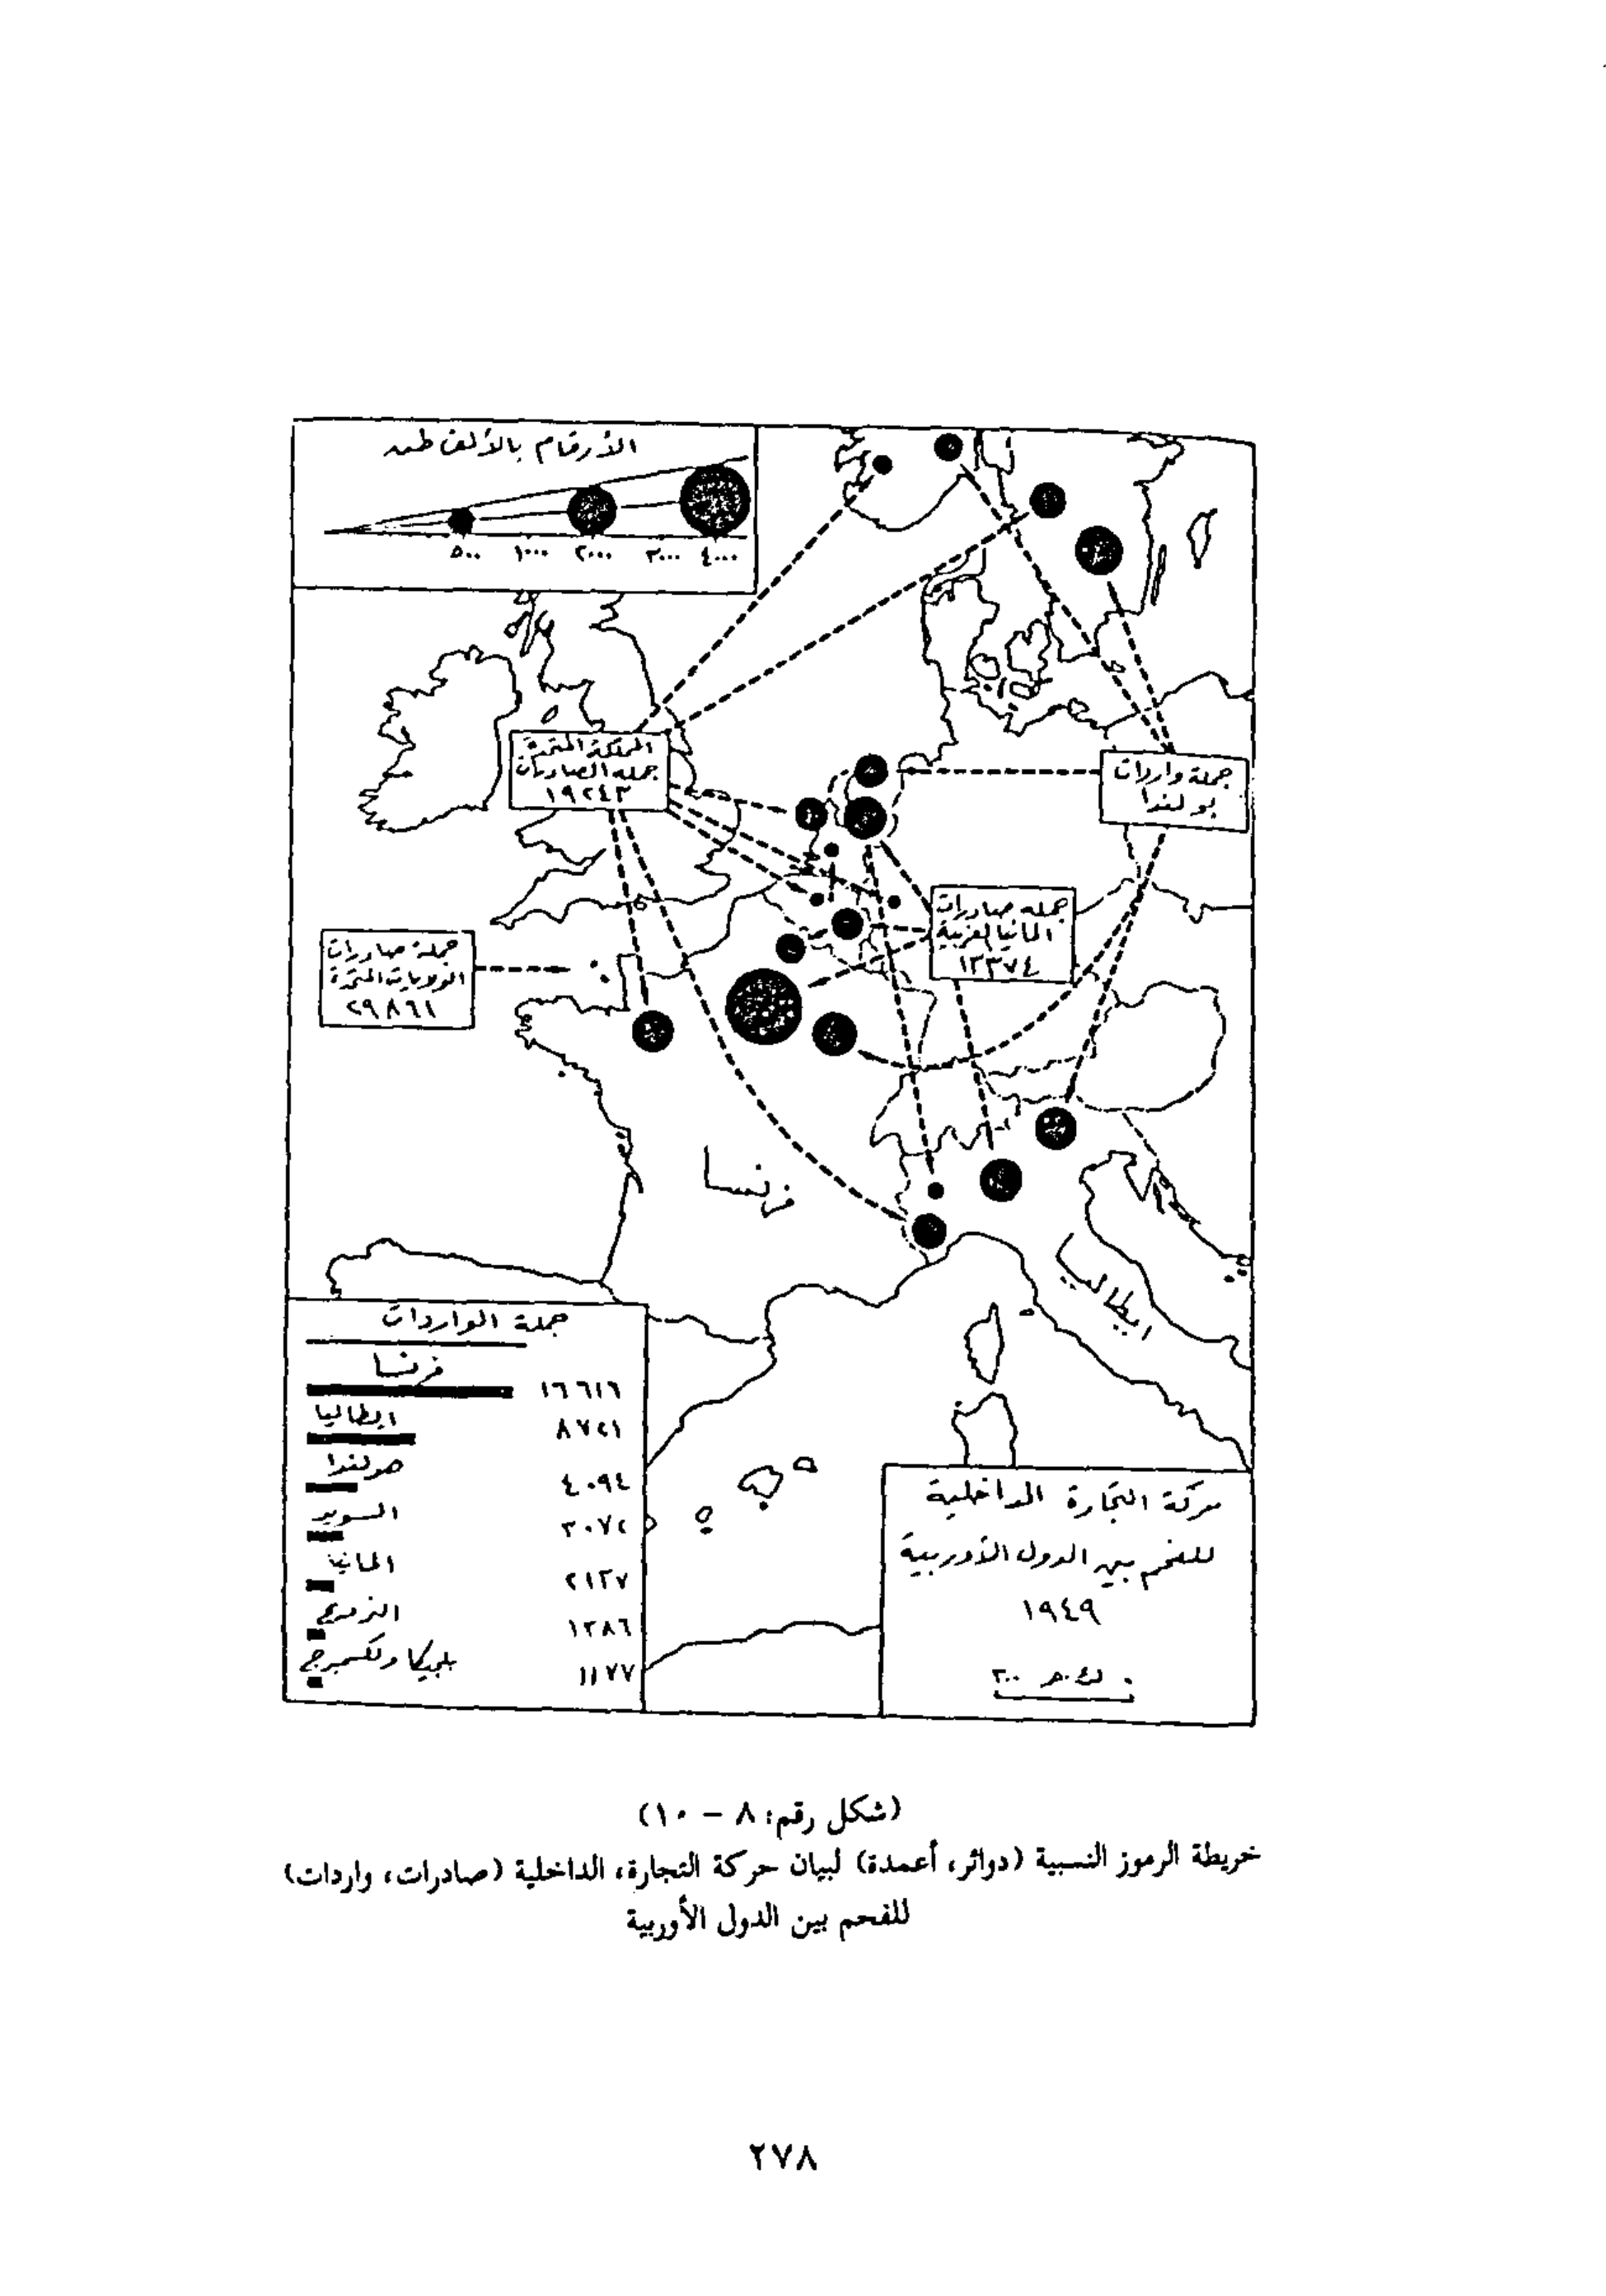 الأرقام بالألف طن
٥٠٠ ١٠٠٠ ٢٠٠٠ ٣٠٠٠ ٤٠٠٠
المملكة المتحدة
جملة الصادرات
١٩٢٤٣
جملة واردات
بولندا
جملة صادرات
المانيا الغربية
١٣٣٧٤
جملة صادرات
الولايات المتحدة
٢٩٨٦١
فرنسا
ايطاليا
جملة الواردات
فرنسا
١٦٦١٦
ايطاليا
٨٧٢١
هولندا
٤٠٩٤
السويد
٣٠٧٢
المانيا
٢١٣٧
النرويج
١٣٨٦
بلجيكا ولكسمبرج
١١٧٧
حركة التجارة الداخلية
للفحم بين الدول الأوربية
١٩٤٩
٠ ٣٠٠
(شكل رقم: ٨ – ١٠)
خريطة الرموز النسبية (دوائر، أعمدة) لبيان حركة التجارة، الداخلية (صادرات، واردات)
للفحم بين الدول الأوربية
٢٧٨